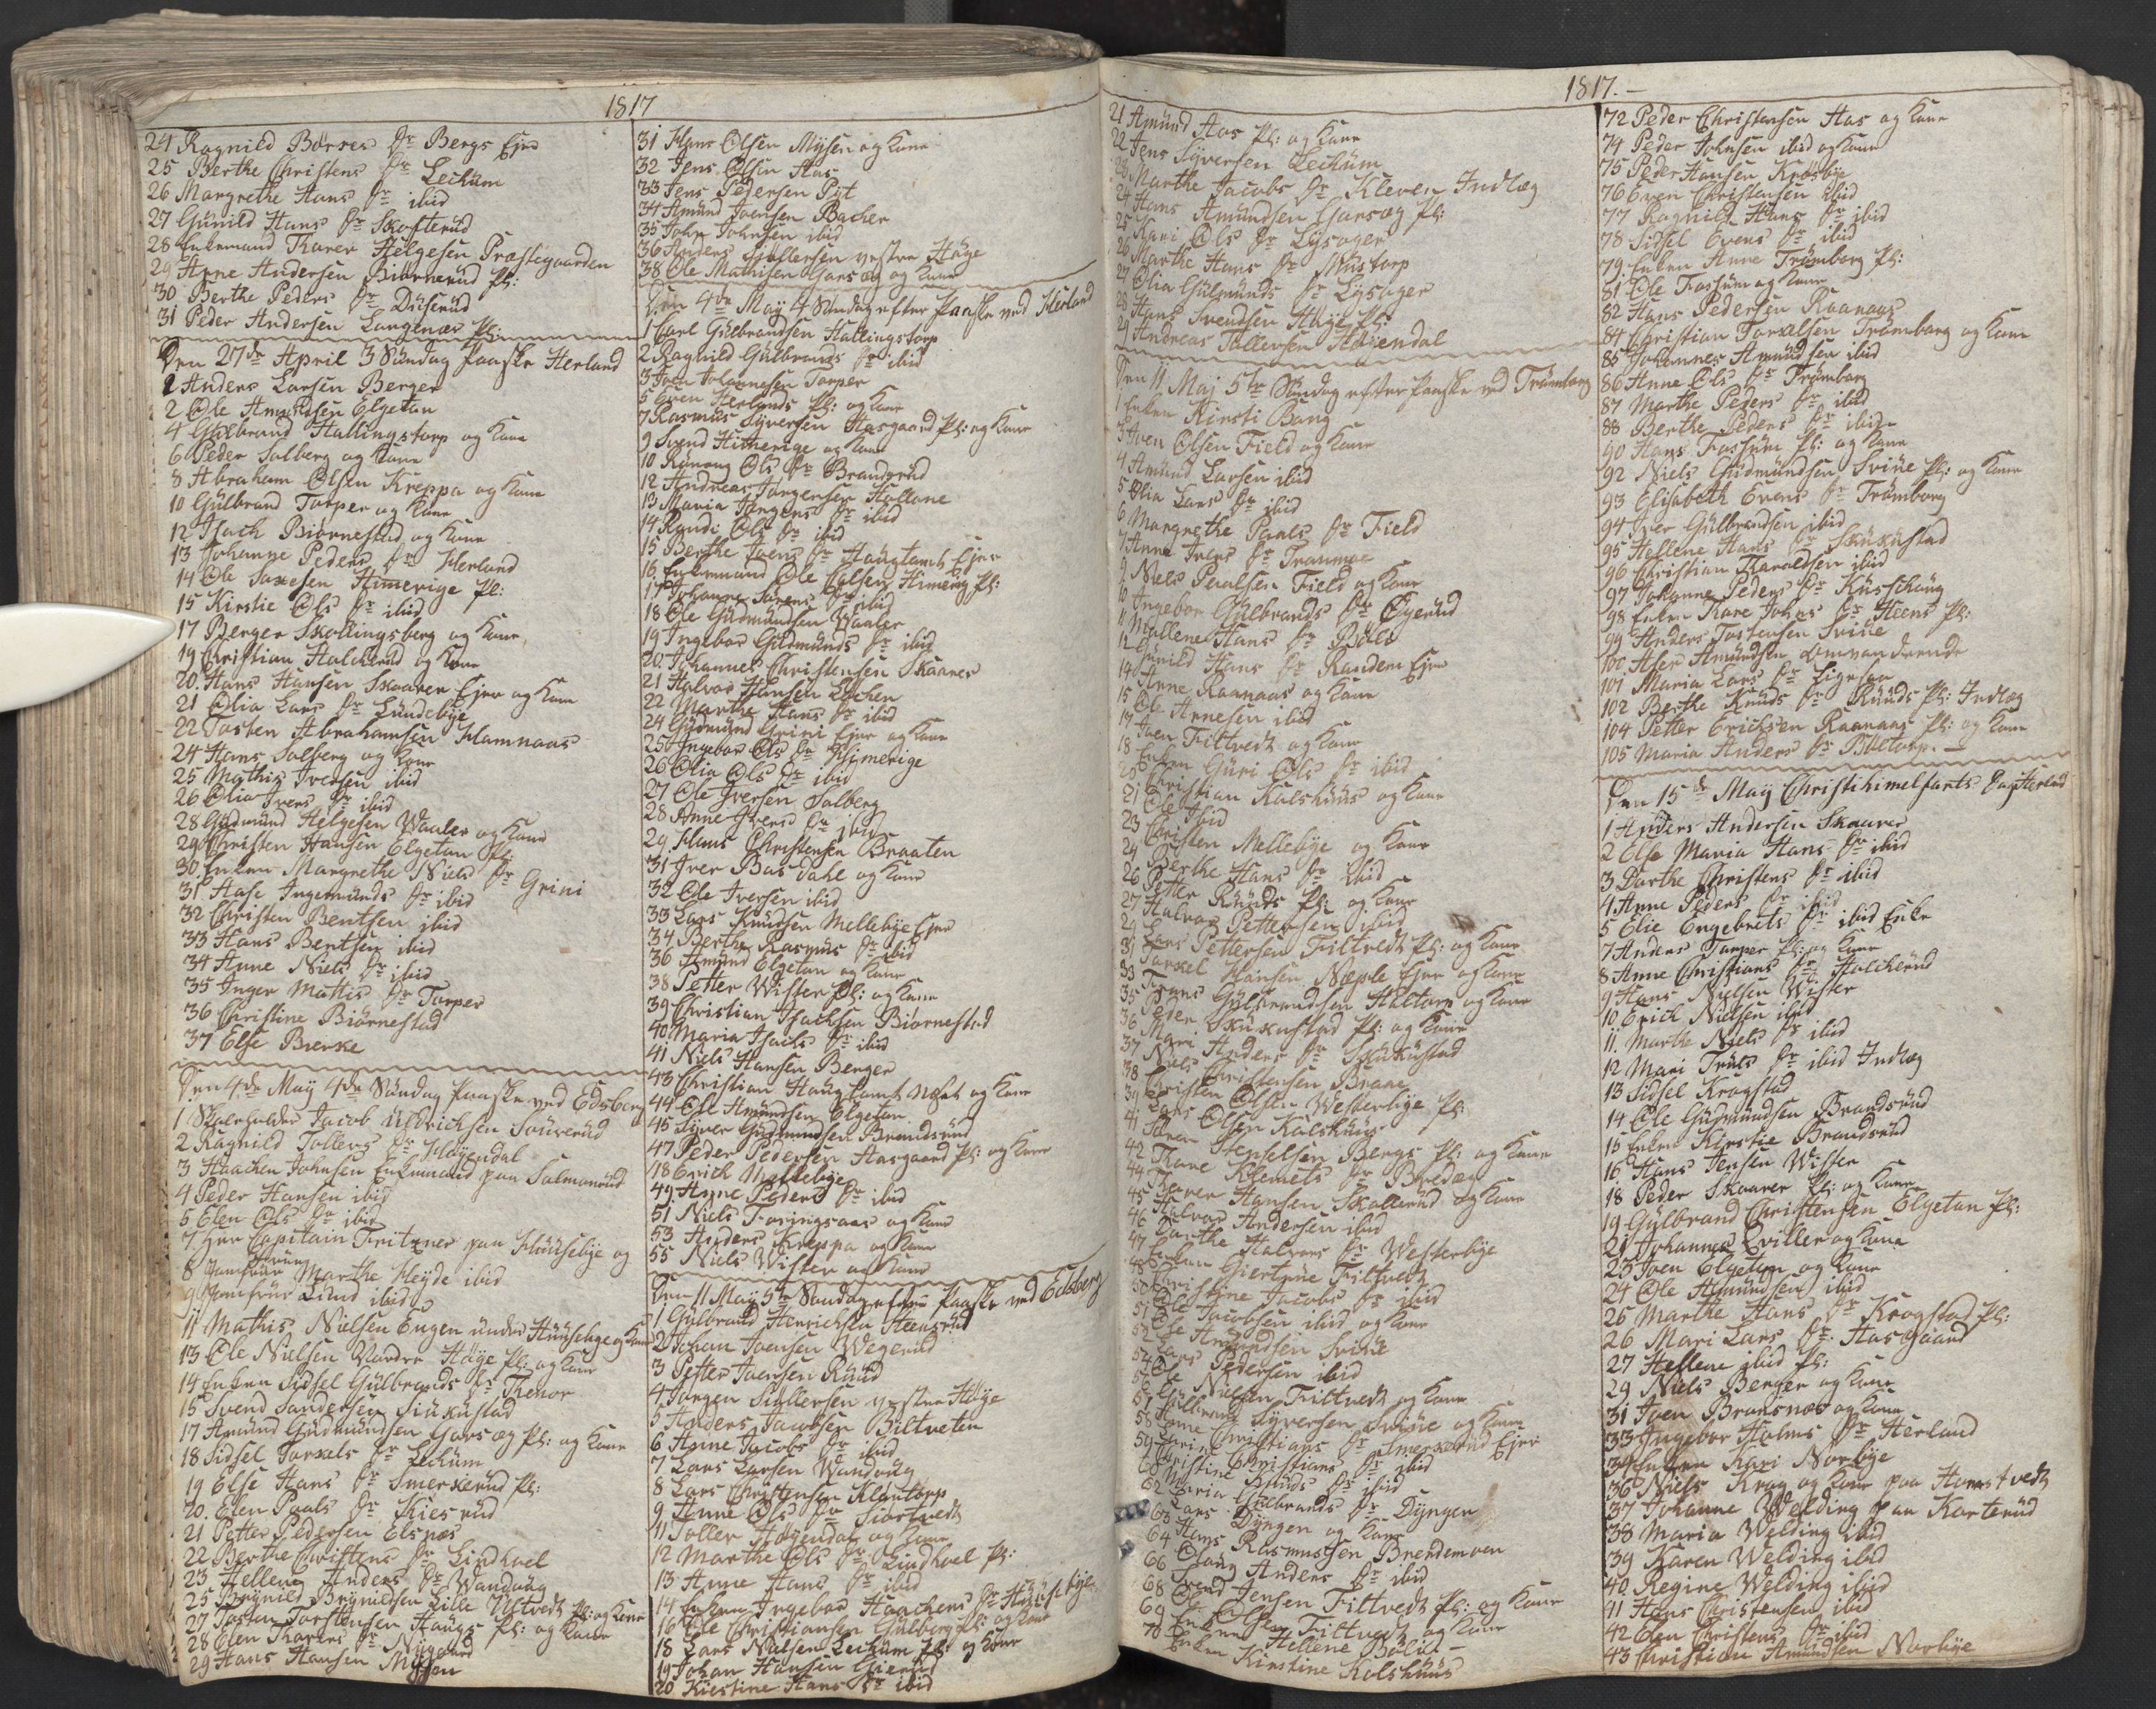 1817
24 Ragnild Børres Dr Bergs Ejer
25 Berthe Christens Dr Lechum
26 Margrethe Hans Dr ibid
27 Gunild Hans Dr Skofterud
28 Enkemand Karer Helgesen Præstegaarden
29 Anne Andersen Biørnerud Pl:
30 Berthe Peders Dr Diiserud
31 Peder Andersen Langenæs Pl:
Den 27de April 3 Sündag Paaske Herland
1 Anders Larsen Berger
2 Ole Amundsen Elgetun
4 Gülbrand Hallingstorp og Kone
6 Peder Solberg og Kone
8 Abraham Olsen Kreppa og Kone
10 Gülbrand Torper og Kone
12 Isach Biørnestad og Kone
13 Johanne Peders Dr Herland
14 Ole Saxesen Himerige Pl:
15 Kirstie Ols Dr ibid
17 Berger Skollingsberg og Kone
19 Christian Halcherud og Kone
20 Hans Hansen Skaarer Ejer og Kone
21 Olia Lars Dr Lündebye
22 Tosten Abrahamsen Hamnaas
24 Hans Solberg og Kone
25 Mathis Iversen ibid
26 Olia Ivers Dr ibid
28 Gudmund Helgesen Waaler og Kone
29 Christen Hansen Elgetun Pl:
30 Enken Margrethe Niels Dr Grini
31 Aase Ingemunds Dr ibid
32 Christen Bentsen ibid
33 Hans Bentsen ibid
34 Anne Niels Dr ibid
35 Inger Mattis Dr Torper
36 Christine Biørnestad
37 Else Bierke
Den 4de May 4de Sündag Paaske ved Edsberg
1 Skoleholder Jacob Uldrichsen Souverud
2 Ragnild Tollers Dr Høyendal
3 Haachen Johnsen Enkemand paa Salmonrud
4 Peder Hansen ibid
5 Elen Ols Dr ibid
7 Herr Capitain Fritzner paa Huusebye og
Frue
8 Jomfrue Marthe Heyde ibid
9 Jomfrue Lund ibid
11 Mathis Nielsen Engen under Huusebye og Kone
13 Ole Nielsen Nordre Høye Pl: og Kone
14 Enken Sidsel Gülbrands Dr Thenor
15 Svend Sandersen Siükustad
17 Amund Gudmundsen Gorsæg Pl: og Kone
18 Sidsel Torkels Dr Lechum
19 Else Hans Dr Smerkerud Pl:
20 Elen Paals Dr Kiesrud
21 Petter Pedersen Elsnæs
22 Berthe Christens Dr Lindhoel
23 Hellene Anders Dr Wandoug
25 Brynild Brynildsen Lille Ustvedt Pl: og Kone
27 Tosten Torstensen Haügs Pl: og Kone
28 Elen Thorers Dr Nygaard
29 Hans Hansen Mysen
31 Hans Olsen Mysen og Kone
32 Jens Olsen Aas
33 Jens Pedersen Pøt
34 Amund Joensen Bacher
35 John Johnsen ibid
36 Anders Siøllersen vestre Høye
38 Ole Mathisen Gorsæg og Kone
Den 4de May 4 Søndag efter Paaske ved Herland
1 Carl Gülbrandsen Hallingstorp
2 Ragnild Gülbrands Dr ibid
3 Joen Johannesen Torper
5 Even Herlands Pl: og Kone
7 Rasmus Syversen Aasgaard Pl: og Kone
9 Svend Himerige og Kone
10 Rønnoug Ols Dr Brandsrud
12 Andreas Jørgensen Hollane
13 Maria Jørgens Dr ibid
14 Randi Ols Dr ibid
15 Berthe Joens Dr Haugtomt Ejer
16 Enkemand Ole Colsen Himerig Pl:
17 Johanne Sørens Dr ibid
18 Ole Gudmundsen Waaler
19 Ingebor Gudmunds Dr ibid
20 Johannes Christensen Skaarer
21 Halvor Hansen Løchen
22 Marthe Hans Dr ibid
24 Gudmund Grini Ejer og Kone
25 Ingebor Ols Dr Himerige
26 Olia Ols Dr ibid
27 Ole Iversen Solberg
28 Anne Ivers Dr ibid
29 Hans Christensen Braaten
31 Iver Bas Dahl og Kone
32 Ole Iversen ibid
33 Lars Knudsen Mellebye Ejer
34 Berthe Rasmus Dr ibid
36 Amund Elgetun og Kone
38 Petter Wister Pl: og Kone
39 Christian Isachsen Biørnestad
40 Maria Isachs Dr ibid
41 Niels Hansen Berger
43 Christian Haugtomt Nohst og Kone
44 Ole Amundsen Elgetun
45 Siver Gudmundsen Brandsrud
47 Peder Pedersen Aasgaard Pl: og Kone
48 Erich Mellebye
49 Anne Peders Dr ibid
51 Niels Foringsaas og Kone
53 Anders Kreppa og Kone
55 Niels Wister og Kone
Den 11 May 5te Søndag efter Paaske ved Edsberg
1 Gülbrand Henrichsen Steensrud
2 Johan Joensen Wegerud
3 Petter Joensen Ruud
4 Jørgen Siøllersen vestre Høye
5 Anders Jacobsen Biltveten
6 Anne Jacobs Dr ibid
7 Lars Larsen Wandoug
8 Lars Christensen Kløntorp
9 Anne Ols Dr Siortvedt
11 Toller Høyendal og Kone
12 Marthe Ols Dr Lindhoel Pl:
13 Anne Hans Dr ibid
14 Enken Ingebor Haachens Dr Huusebye
16 Ole Christiansen Gülberg Pl: og Kone
18 Lars Nielsen Lechum Pl: og Kone
19 Johan Hansen Gierud
20 Kiestine Hans Dr ibid
1817.
21 Amund Aas Pl: og Kone
22 Jens Syversen Lechum
23 Marthe Jacobs Dr Kleven Indlæg
24 Hans Amundsen Gorsæg Pl:
25 Kari Ols Dr Lysager
26 Marthe Hans Dr Mustorp
27 Olia Gulmunds Dr Lysager
28 Hans Svendsen Høye Pl:
29 Andreas Tollersen Høyendal
Den 11 Maj 5te Søndag efter Paaske ved Trømborg
1 Enken Kirsti Bang
3 Iven Olsen Field og Kone
4 Amund Larsen ibid
5 Olia Lars Dr ibid
6 Margrethe Paals Dr Field
7 Anne Ivers Dr Traumoe
9 Niels Paulsen Field og Kone
10 Ingebor Gülbrands Dr Øgerud
11 Mallene Hans Dr
12 Gunild Hans Dr Randem Ejer
14 Arne Raanaas og Kone
15 Ole Arnesen ibid
17 Joen Filtvedt og Kone
18 Enken Guri Ols Dr ibid
20 Christian Kalshuus og Kone
21 Ole ibid
23 Christen Mellebye og Kone
24 Berthe Hans Dr ibid
26 Petter Ruuds Pl: og Kone
27 Halvor Pettersen ibid
29 Lars Pettersen Filtvedt Pl: og Kone
31 Torkel Hansen Næple Ejer og Kone
33 Frans Gülbrandsen Haltorp og Kone
35 Peder Skukustad Pl: og Kone
36 Mari Anders Dr Skukustad
37 Niels Christensen Brane
38 Christen Olsen Westerbye Pl:
39 Lars Olsen Kalshuus
41 Søren Stenselsen Bergs Pl: og Kone
42 Thore Klemets Dr Breden
44 Torer Hansen Skallerud og Kone
45 Halvor Andersen ibid
46 Marthe Halvors Dr Westerbye
47 Enken Giertrue Filtvedt
48 Christine Jacobs Dr ibid
50 Ole Jacobsen ibid og Kone
51 Ole Amundsen Sviue
52 Lars Pedersen ibid
54 Ole Nielsen Filtvedt og Kone
57 Gülbrand Syversen Sviue og Kone
58 Anne Christians Dr Smerkerud Ejer
59 Christine Christians Dr ibid
60 Maria Knuds Dr ibid
62 Gulbrands Dr Dyngen
63 Lars Dyngen og Kone
64 Hans Rasmussen Brendemoen
66 Anders Dr ibid
68 Svend Jensen Filtvedt Pl: og Kone
69 Filtvedt og Kone
70 Enken Hellene Bølid
Enken Kirstine Kolshuus
72 Peder Christensen Aas og Kone
74 Peder Johnsen ibid og Kone
75 Peder Hansen Krosbye
76 Even Christensen ibid
77 Ragnild Hans Dr ibid
78 Sidsel Evens Dr ibid
79 Enken Anne Trømborg Pl:
81 Ole Fossum og Kone
82 Hans Pedersen Raanaas
84 Christian Torkelsen Trømborg og Kone
85 Johannes Amundsen ibid
86 Anne Ols Dr Trømborg
87 Marthe Peders Dr ibid
88 Berthe Peders Dr ibid
90 Hans Fossum Pl: og Kone
92 Niels Gudmundsen Sviue Pl: og Kone
93 Elisabeth Evens Dr Trømborg
94 Iver Gülbrandsen ibid
95 Hellene Hans Dr Skukustad
96 Christian Haraldsen ibid
97 Johanne Peders Dr Knoschoug
98 Enken Kare Johns Dr Heens Pl:
99 Anders Tostensen Sviue
100 Aser Amundsen omvandrende
101 Maria Lars Dr Ligroen
102 Berthe Knuds Dr Ruuds Pl: Indlæg
104 Petter Erichsen Raanaas Pl: og Kone
105 Maria Anders Dr Bøetorp.
Den 15de May Christi himelfarts Dag Herland
1 Anders Andersen Skaarer
2 Else Maria Hans Dr ibid
3 Dorthe Christens Dr ibid
4 Anne Peders Dr ibid
5 Elie Engebrets Dr ibid Enke
7 Anders Torper Pl: og Kone
8 Anne Christians Dr Halcherud
9 Hans Nielsen Wister
10 Erich Nielsen ibid
11 Marthe Niels Dr ibid
12 Mari Truls Dr ibid Indlæg
13 Sidsel Krogstad
14 Ole Gudmundsen Brandsrud
15 Enken Kirstie Brandsrud
16 Hans Jensen Wister
18 Peder Skaarer Pl: og Kone
19 Gülbrand Christensen Elgetun Pl:
21 Johannes Qviller og Kone
23 Joen Elgetun og Kone
24 Ole Amundsen ibid
25 Marthe Hans Dr Krogstad Pl:
26 Mari Lars Dr Aasgaard
27 Hellene ibid Pl:
29 Niels Berger og Kone
31 Joen Bransnæs og Kone
33 Ingebor Holms Dr Herland
34 Enken Kari Norbye
36 Niels Krog og Kone paa Hornstvedt
37 Johanne Welding paa Karterud
38 Maria Welding ibid
39 Karen Welding ibid
40 Regine Welding ibid
41 Hans Christensen ibid
42 Elen Christens Dr ibid
43 Christian Amundsen Norbye